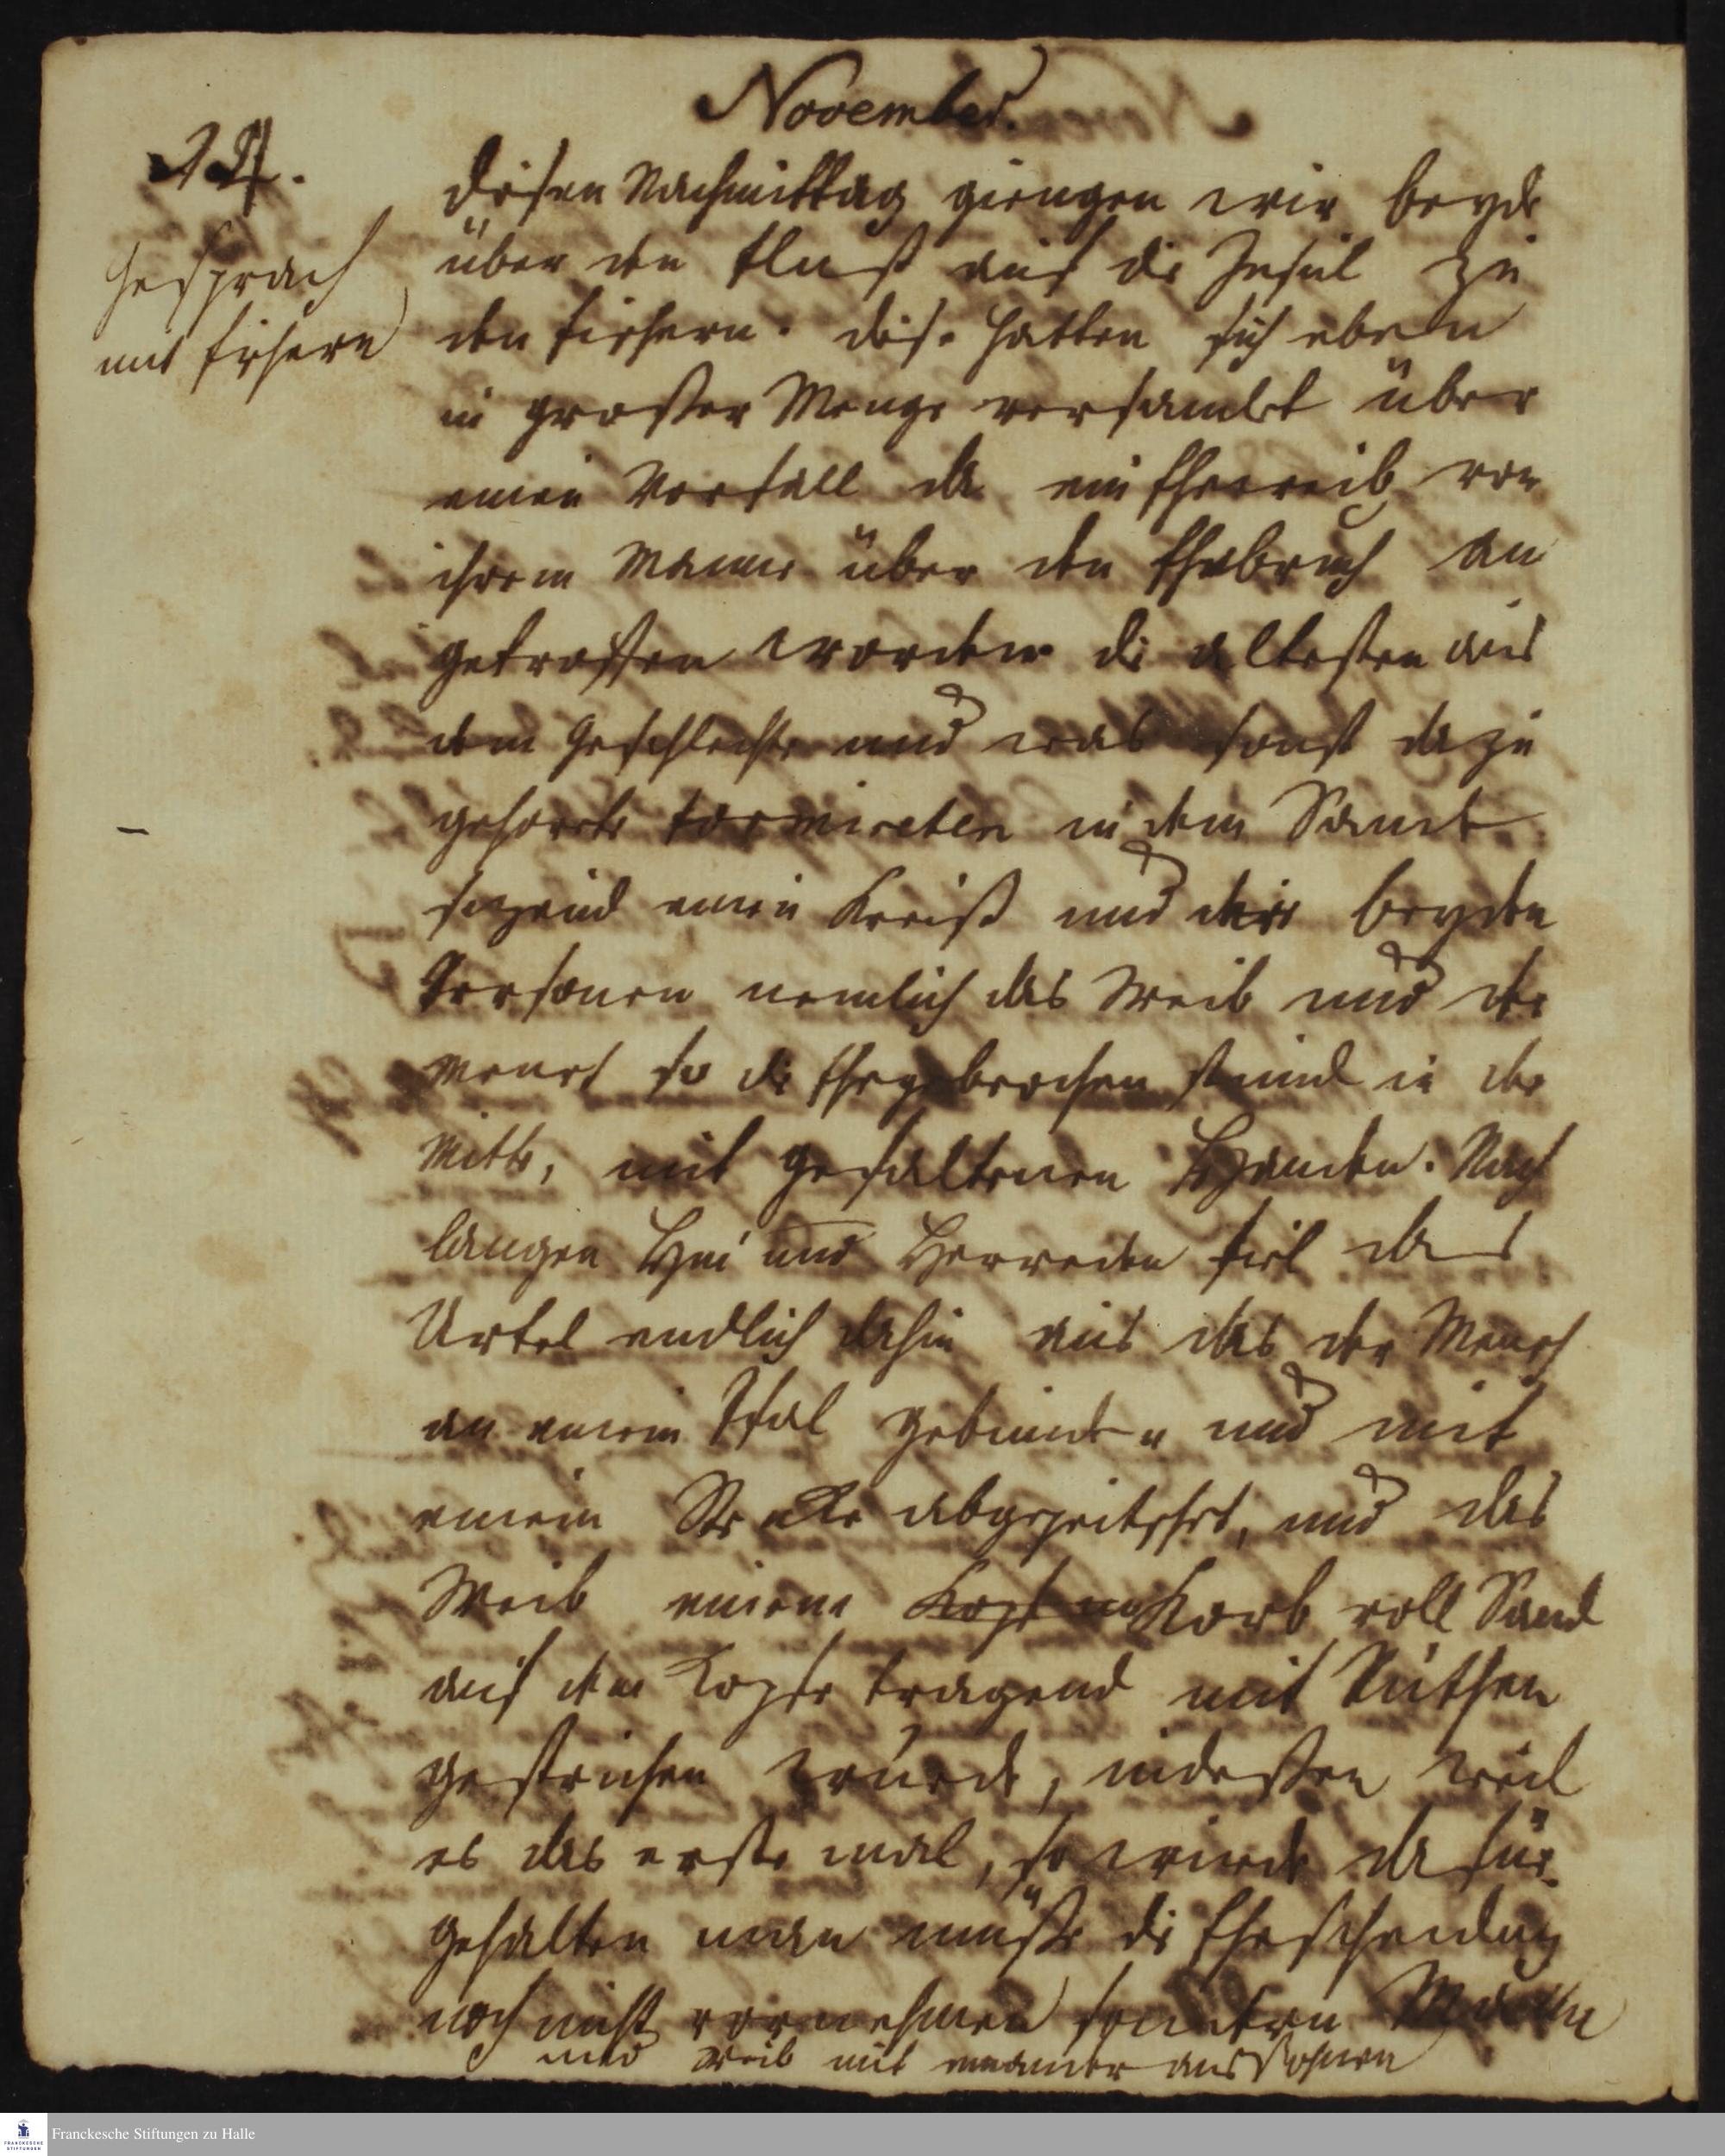 November.
24.
Gesprach
mit fischern
disen Nachmittag giengen wir beyde
über den Fluß auf die Insul zu
den fischern. dise hatten sich eben
in großer Menge versamlet über
einen Vorfall da ein Eheweib von
ihrem Manne über den Ehebruch an
getroffen worden. die altesten aus
dem Geschlechte und was sonst dazu
gehorete formireten in dem Sande
sizend einen Kreiß und die beyden
Personen nemlich das Weib und der
Mensch so die Ehe gebrochen stund in der
Mitte, mit gefaltenen Handen. Nach
langen Hin und Herreden fiel das
Urtel endlich dahin aus das der Mensch
an einem Pfal gebunden und mit
einem Stricke abgepeitschet, und das
Weib einem Korb voll Sand
auf dem Kopfe tragend mit Ruthen
gestrichen wurde, indeßen weil
es das erste mal, so wurde da für
gehalten man muste die Ehescheidung
noch nicht vornehmen sondern Mann
und Weib mit einander aussohnen
Franckesche Stiftungen zu Halle